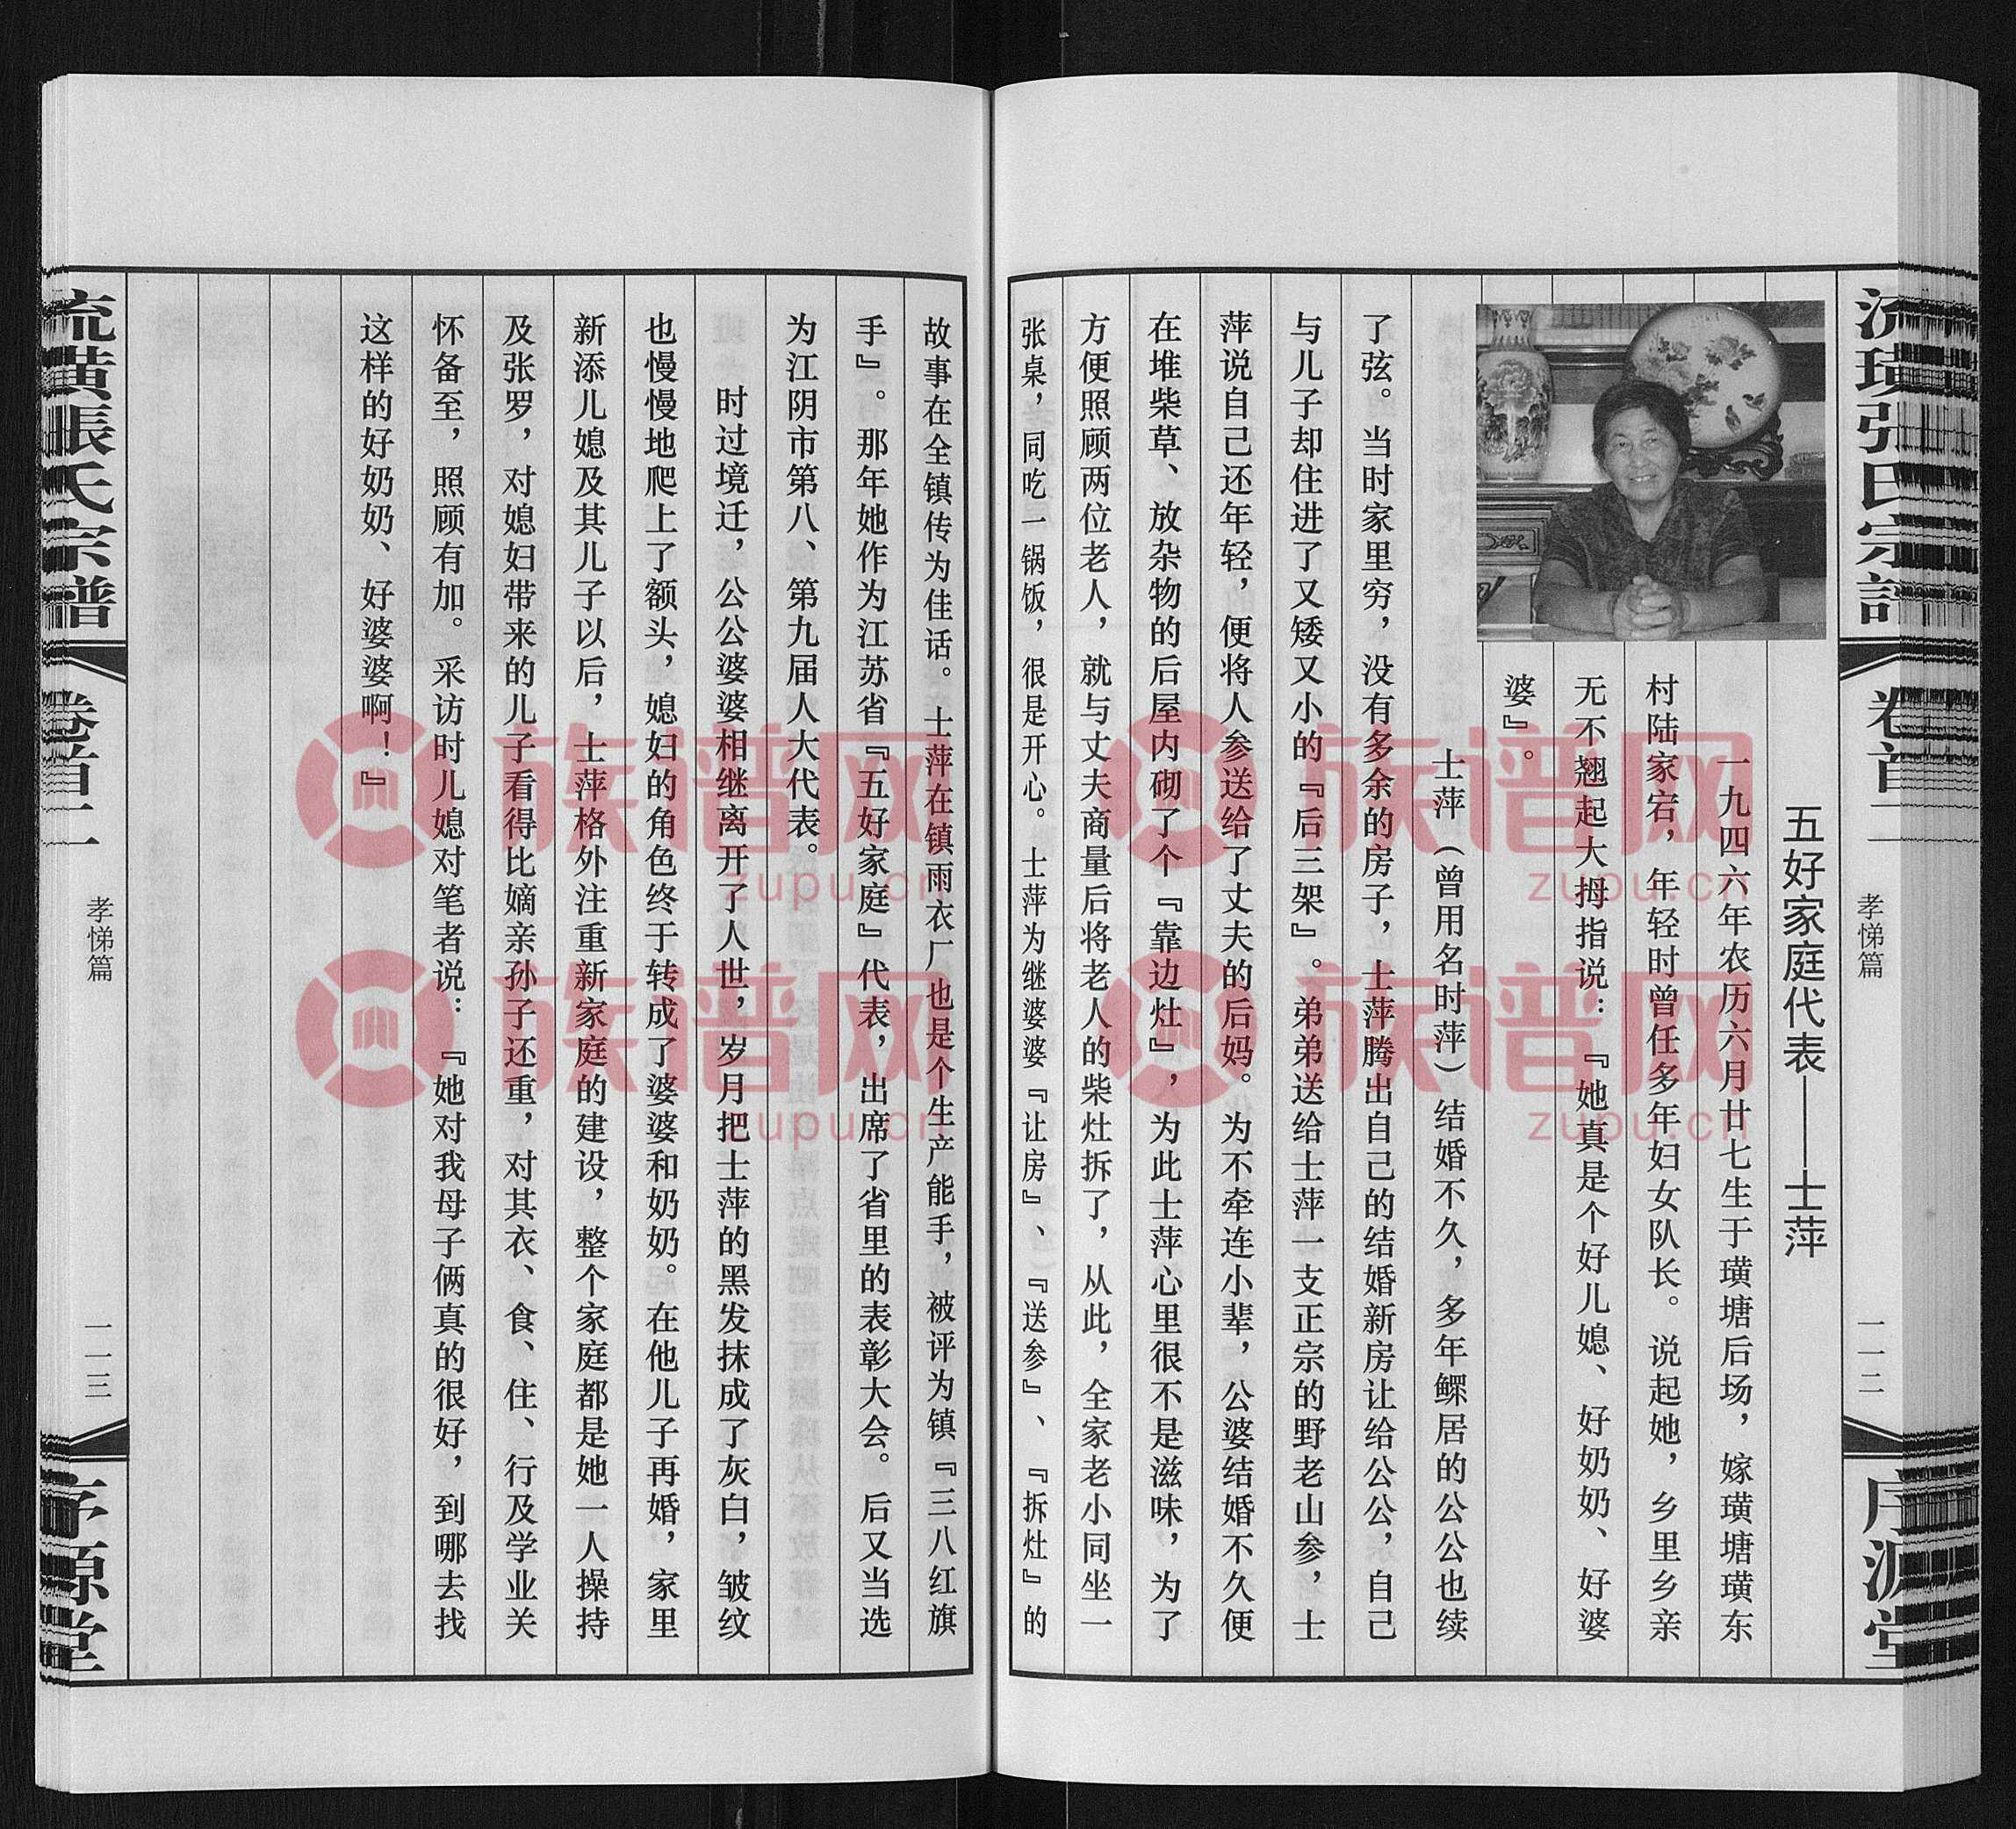 流璜张氏宗譜
卷首二
孝悌篇
一一二
序源堂
五好家庭代表——士萍
一九四六年农历六月廿七生于璜塘后场，嫁璜塘璜东
村陆家宕，年轻时曾任多年妇女队长。说起她，乡里乡亲
无不翘起大拇指说：『她真是个好儿媳、好奶奶、好婆
婆』。
士萍（曾用名时萍）结婚不久，多年鳏居的公公也续
了弦。当时家里穷，没有多余的房子，士萍腾出自己的结婚新房让给公公，自己
与儿子却住进了又矮又小的『后三架』。弟弟送给士萍一支正宗的野老山参，士
萍说自己还年轻，便将人参送给了丈夫的后妈。为不牵连小辈，公婆结婚不久便
在堆柴草、放杂物的后屋内砌了个『靠边灶』，为此士萍心里很不是滋味，为了
方便照顾两位老人，就与丈夫商量后将老人的柴灶拆了，从此，全家老小同坐一
张桌，同吃一锅饭，很是开心。士萍为继婆婆『让房』、『送参』、『拆灶』的
故事在全镇传为佳话。士萍在镇雨衣厂也是个生产能手，被评为镇『三八红旗
手』。那年她作为江苏省『五好家庭』代表，出席了省里的表彰大会。后又当选
为江阴市第八、第九届人大代表。
时过境迁，公公婆婆相继离开了人世，岁月把士萍的黑发抹成了灰白，皱纹
也慢慢地爬上了额头，媳妇的角色终于转成了婆婆和奶奶。在他儿子再婚，家里
新添儿媳及其儿子以后，士萍格外注重新家庭的建设，整个家庭都是她一人操持
及张罗，对媳妇带来的儿子看得比嫡亲孙子还重，对其衣、食、住、行及学业关
怀备至，照顾有加。采访时儿媳对笔者说：『她对我母子俩真的很好，到哪去找
这样的好奶奶、好婆婆啊！』
流璜張氏宗譜
卷首二
孝悌篇
一一三
序源堂
族谱网
zupu.cn
族谱网
zupu.cn
族谱网
zupu.cn
族谱网
zupu.cn